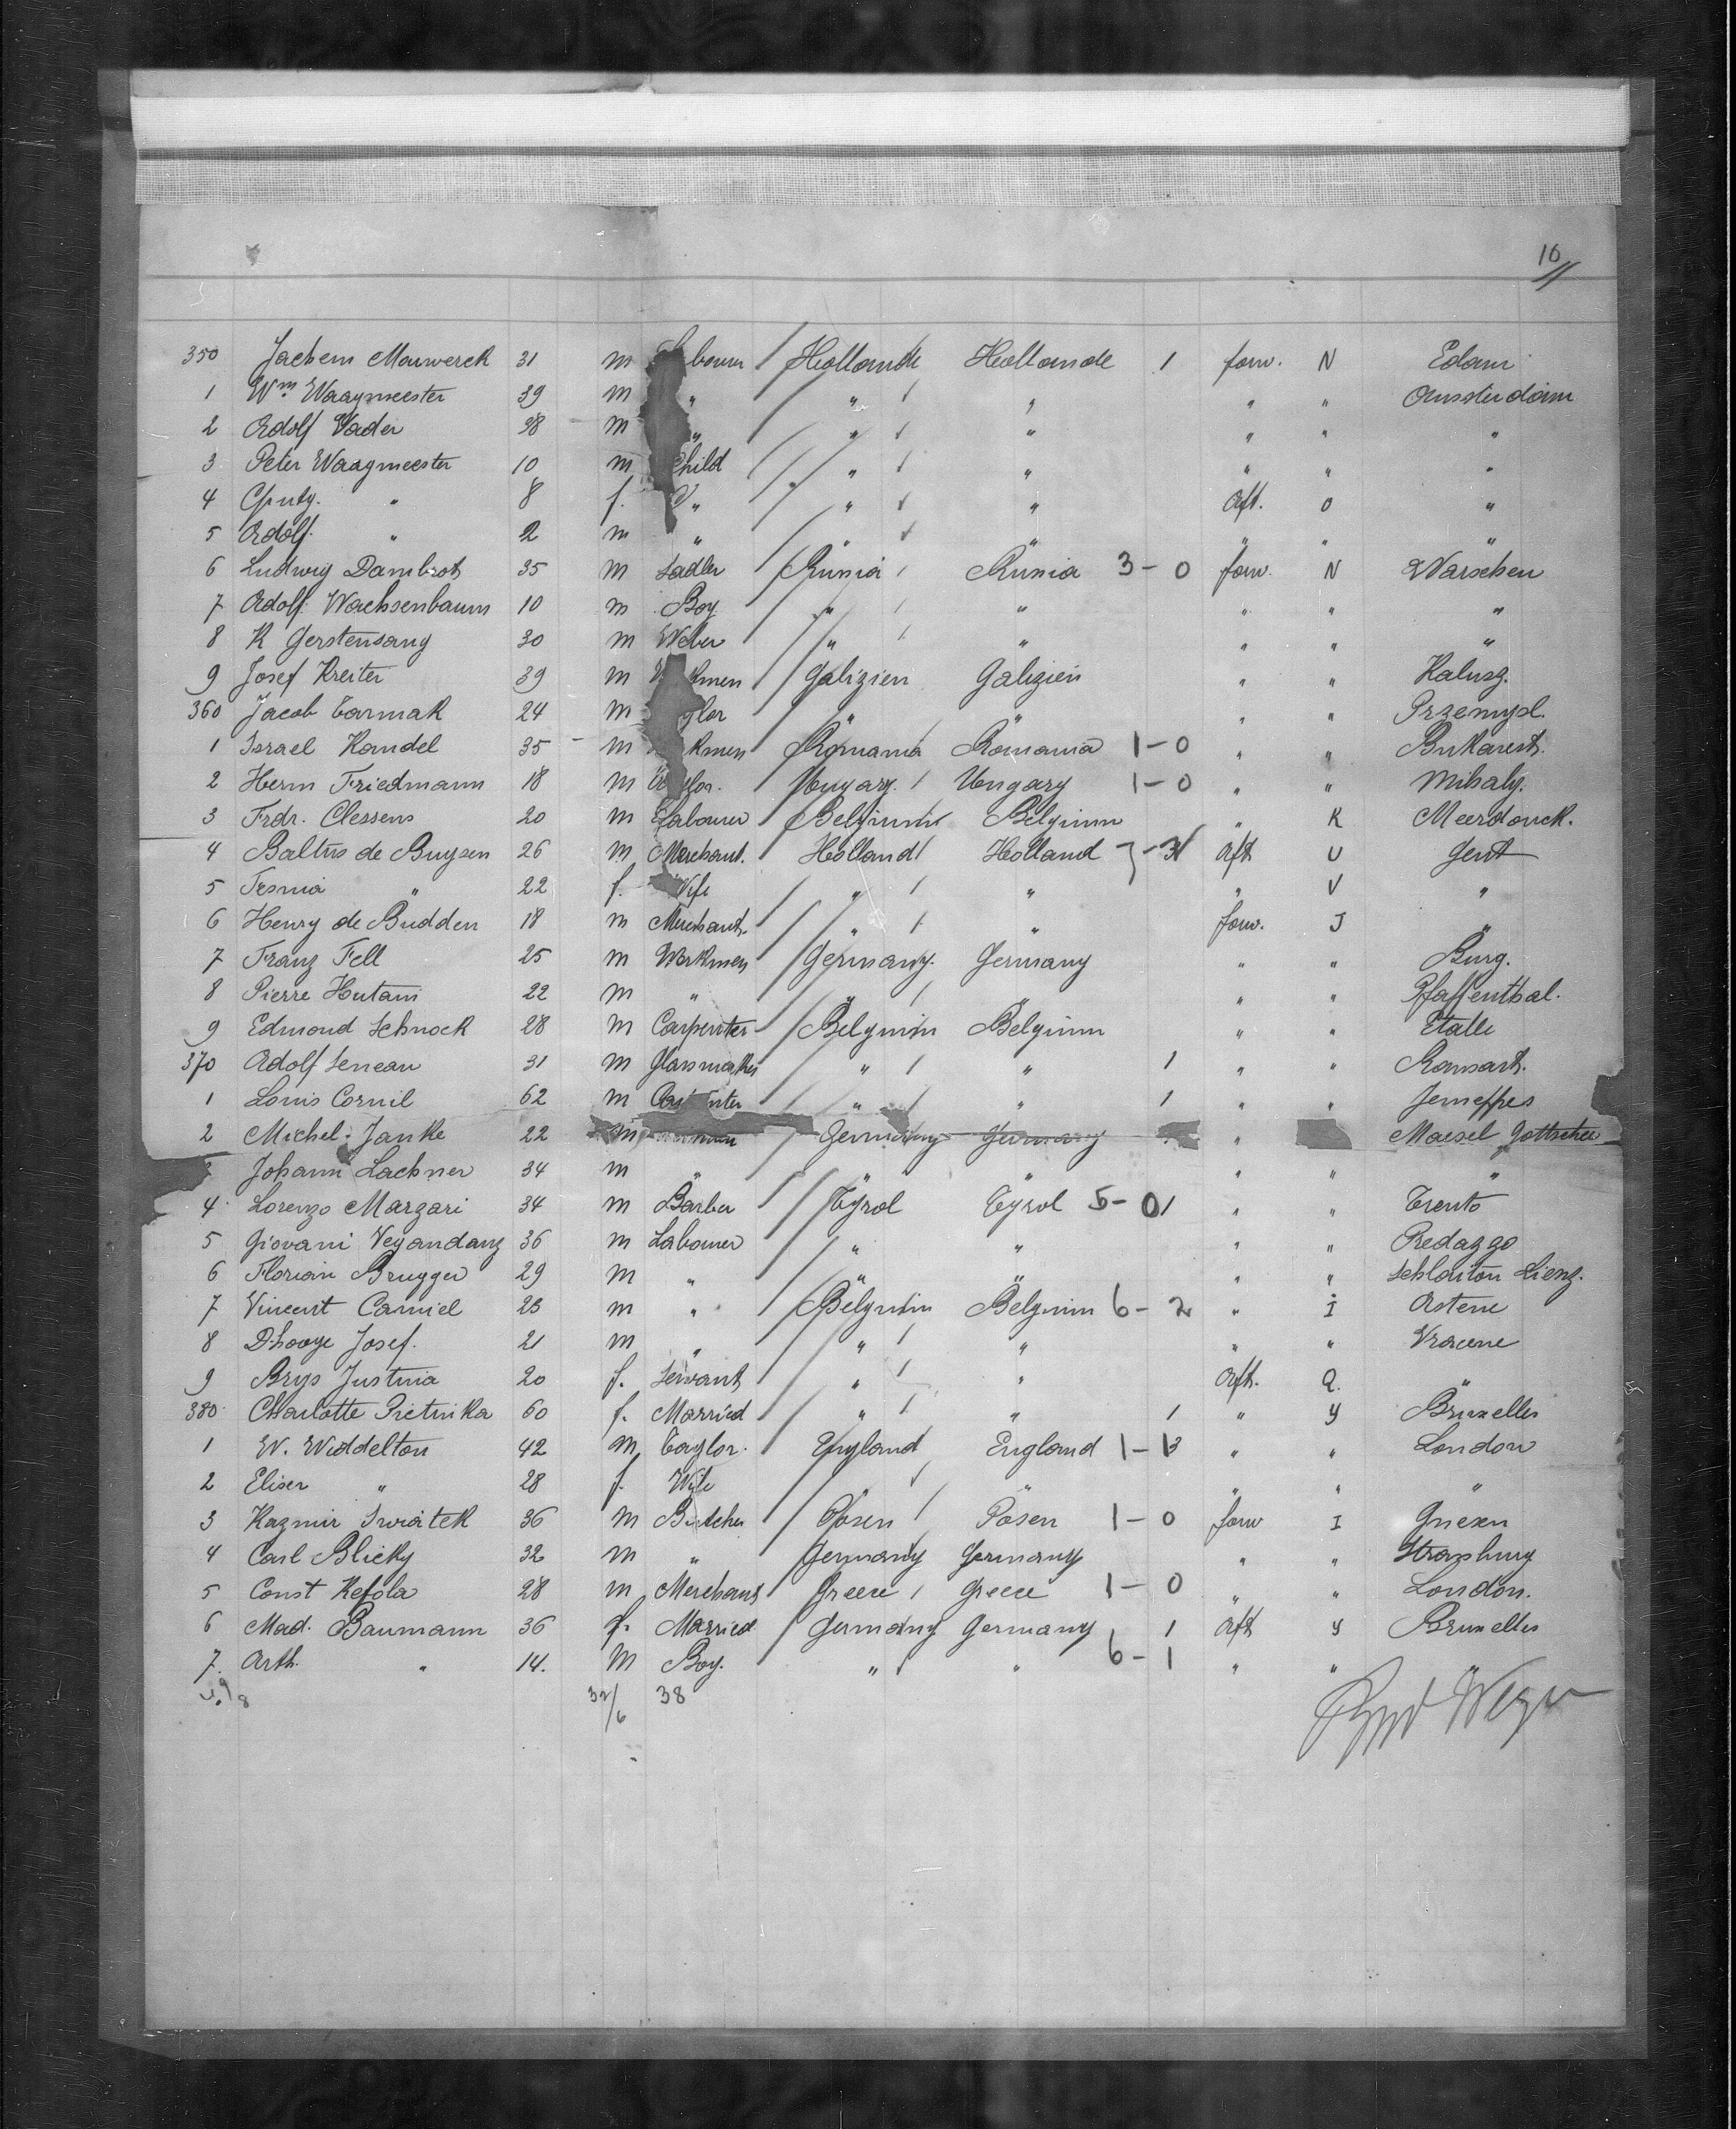 10
350 Jachem Mouwerck 31 m bourer Hollande Hollande 1 forw. N Edam
1 Wm Waagmeester 39 m " " " " " Amsterdam
2 Adolf Vader 38 m " " " " " "
3 Peter Waagmeester 10 m Child " " " " "
4 " 8 f. " " " Aft. O "
5 Adolf. " 2 m " " " " " "
6 Ludwig Dambrot 35 m Sadler Russia Russia 3-0 forw. N Warschen
7 Adolf Wachsenbaum 10 m Boy " " " " "
8 K Gerstensang 30 m Weber " " " " "
9 Josef Kreiter 39 m kmen Galizien Galizien " " Kalusz.
360 Jacob Tarmak 24 m ylor " " " Przemysl.
1 Israel Kandel 35 - m kmen Romania Romania 1-0 " " Bukarest.
2 Herm Friedmann 18 m ylor. Ungary. Ungary 1-0 " " Mihaly.
3 Frdr. Clessens 20 m Labourer Belginm Belginm " K Meerdonck.
4 Baltus de Buysen 26 m Merchant. Holland Holland aft U Gent
5 " 22 f. Wife " " " V "
6 Henry de Budden 18 m Merchant. " " forw. J "
7 Franz Fell 25 m Workmen Germany. Germany " " Burg.
8 Pierre Hutani 22 m " " " " " Pfaffenthal.
9 Edmond Schnock 28 m Carpenter Belginm Belginm " " Etalle
370 Adolf Seneau 31 m Glasmaker " " 1 " " Ransart.
1 Louis Cornil 62 m " " 1 " " Jemeppes
2 Michel Janke 22 m Germany Germany " Maesel Gottschee
Johann Lachner 34 m " " " " " "
4 Lorenzo Margari 34 m Barber Tyrol Tyrol 5-0 1 " " Trento
5 Giovani Vegandanz 36 m Labourer " " " " Predazzo
6 Florian Brugger 29 m " " " " " Schlaiton Lienz.
7 Vincent Camiel 23 m " Belginm Belginm 6-2 " i Astene
8 D'hooge Josef. 21 m " " " " " Vracene
9 Brys Justina 20 f. Servant " " Aft. Q. "
380 Charlotte Pietnika 60 f. Married " " 1 " y Bruxelles
1 W. Widdelton 42 m Taylor. England England " " London
2 Eliser " 28 f. Wife " " " " "
3 Kazmir Swiatek 36 m Butcher Posen Posen 1-0 forw I Gnesen
4 Carl Blicky 32 m " Germany Germany " " Strasburg
5 Const Kefola 28 m Merchant Greece Greece 1-0 " " London.
6 Mad. Baumann 36 f. Married Germany Germany 1 aft y Bruxelles
7. Arth. " 14. m Boy. " " 6-1 " " "
32/6 38